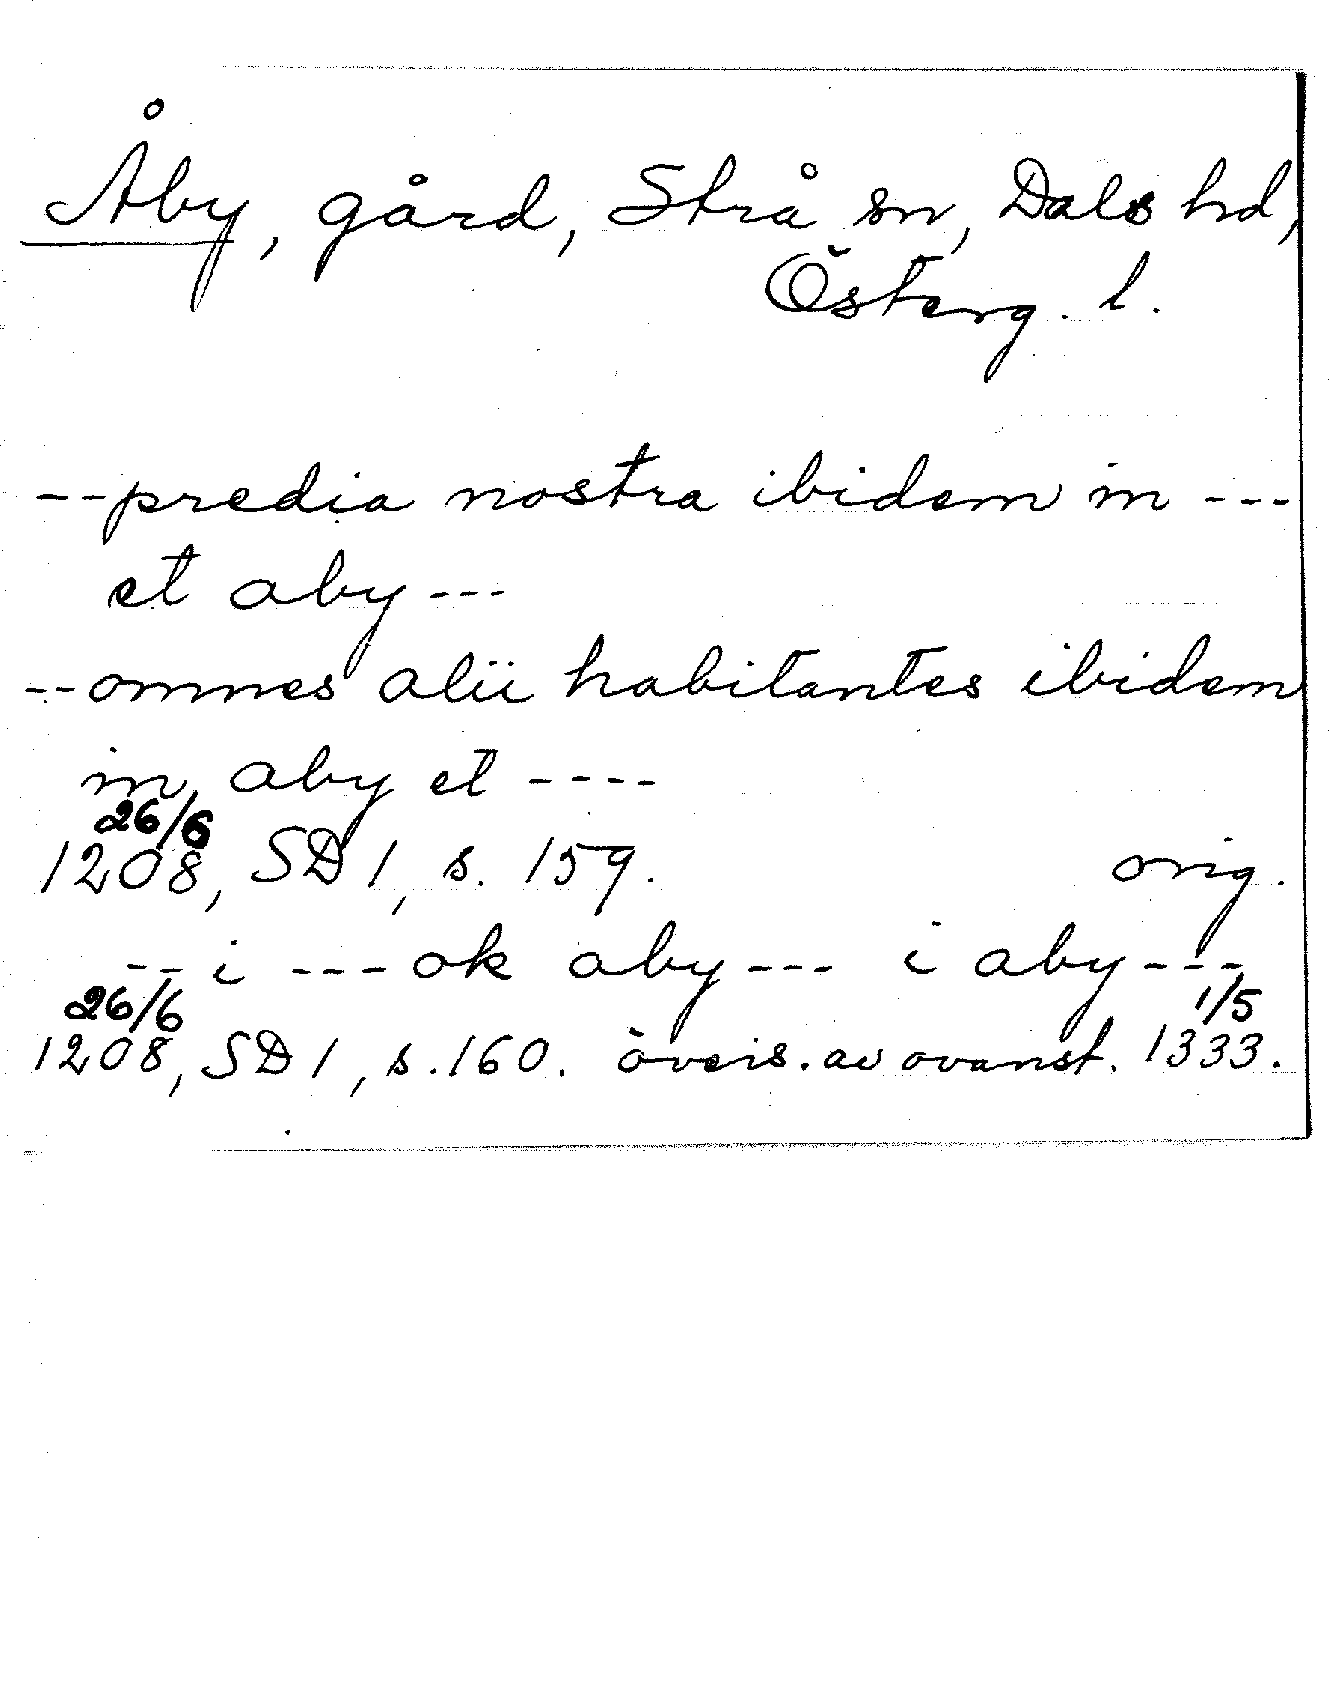 Åby, gård, Strå sn, Dals hd,
Österg. l.
-- predia nostra ibidem in ---
et aby ---
-- omnes alii habitantes ibidem
in aby et ----
26/6
1208, SD 1, s. 159. orig.
-- i --- ok aby --- i aby ---
26/6 1/5
1208, SD 1, s. 160. övers. av ovanst. 1333.